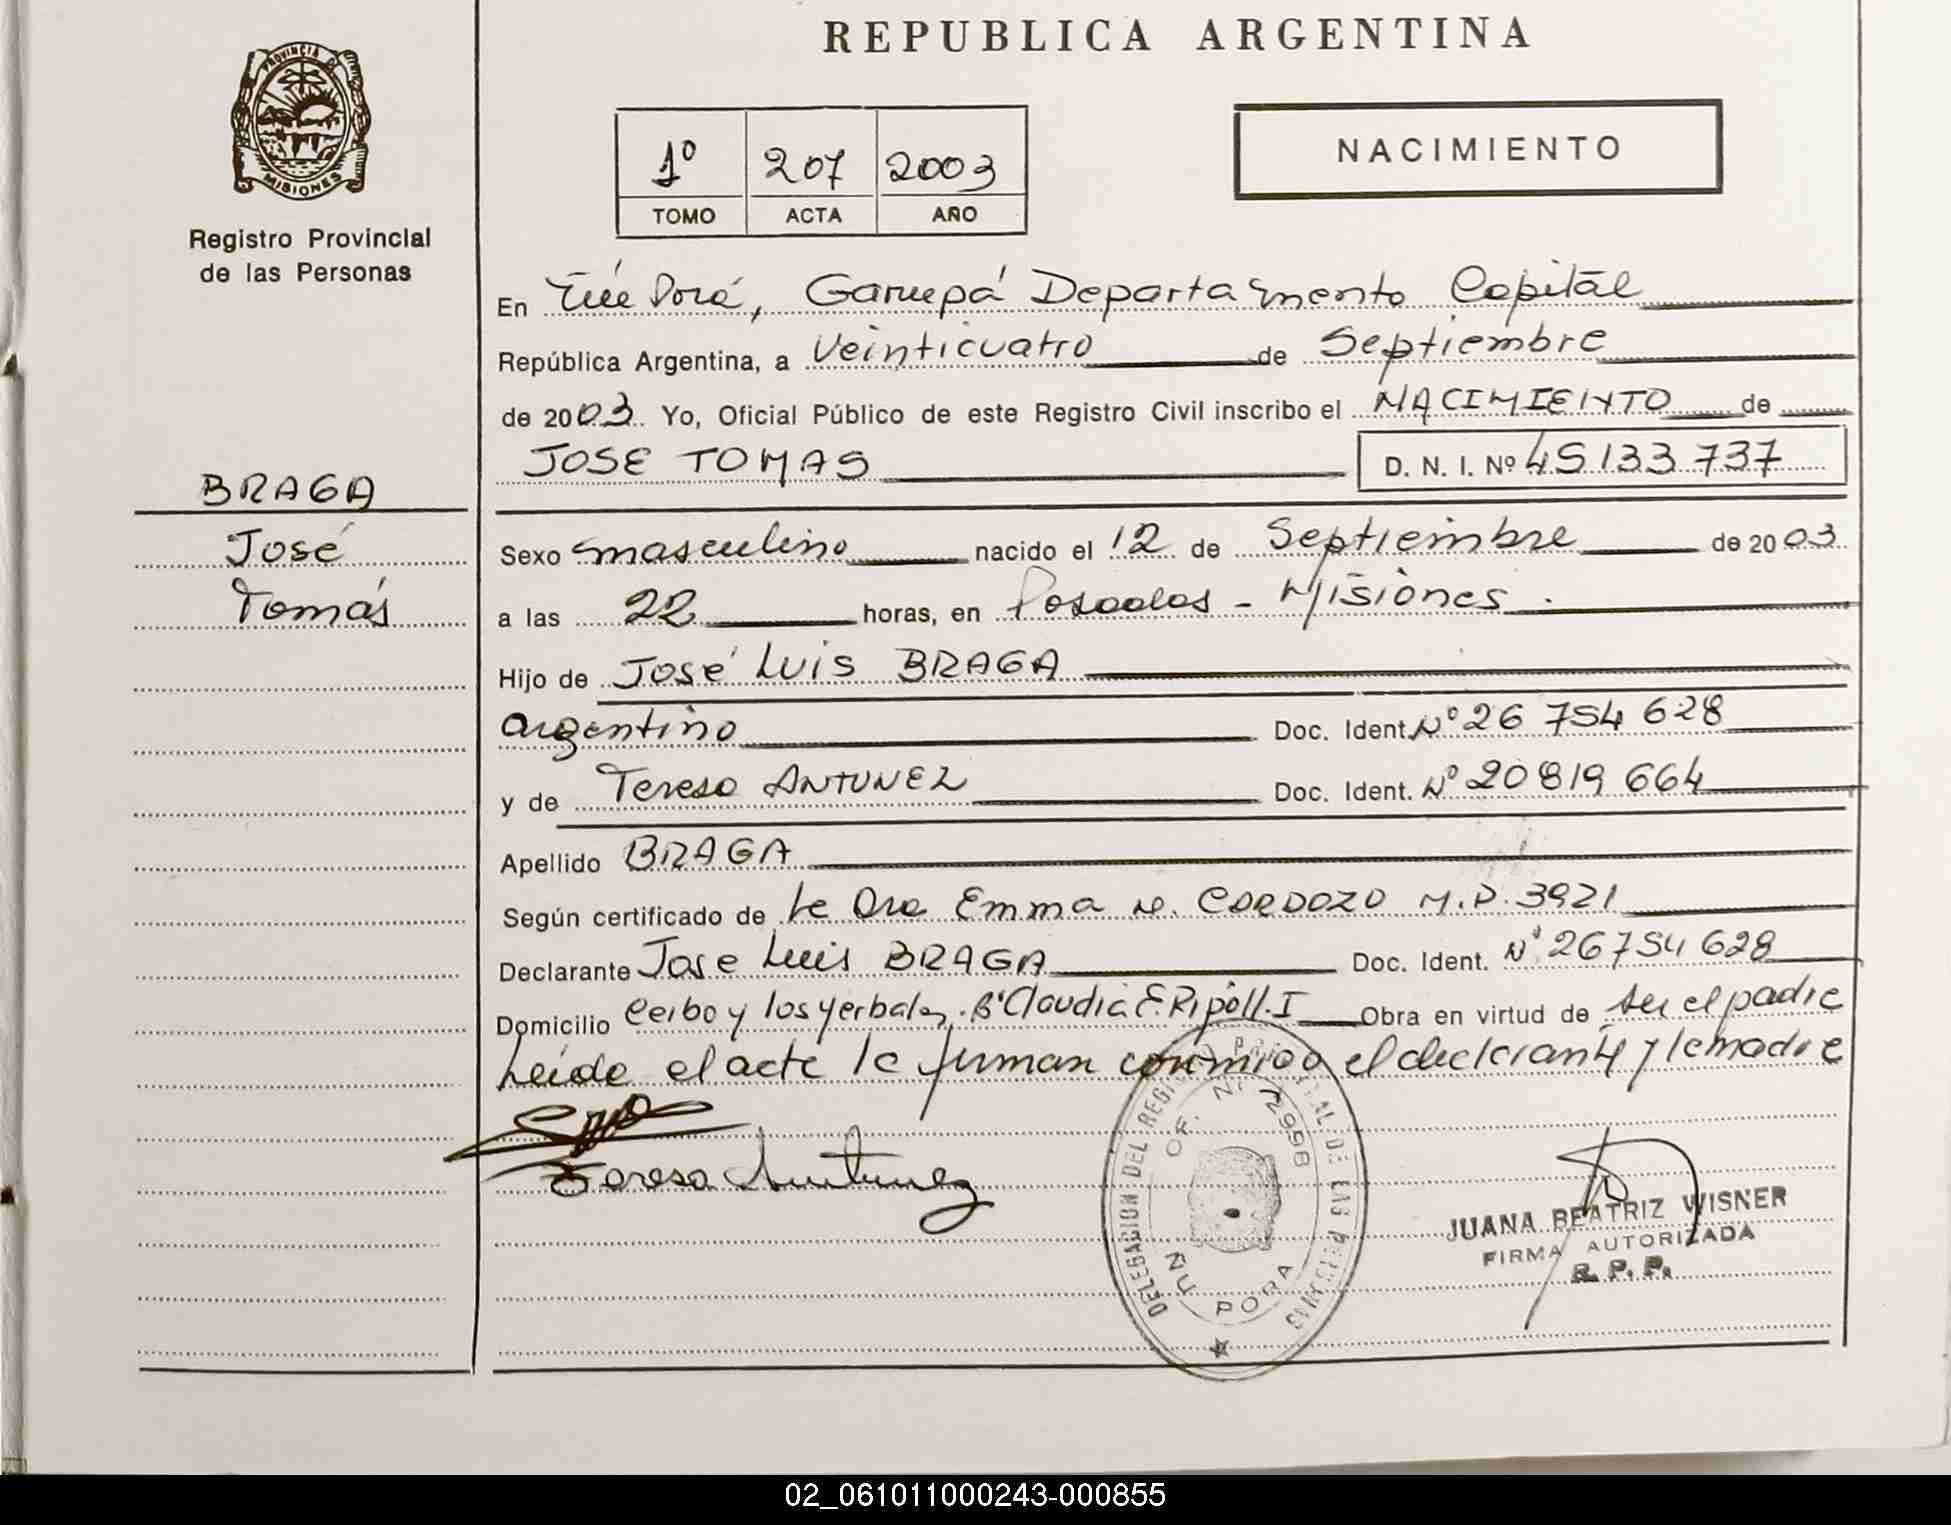 REPUBLICA ARGENTINA
PROVINCIA DE
MISIONES
Registro Provincial
de las Personas
1º 207 2003
TOMO ACTA AÑO
NACIMIENTO
En Ñu Porá, Garupá Departamento Capital
República Argentina, a Veinticuatro de Septiembre
de 2003. Yo, Oficial Público de este Registro Civil inscribo el NACIMIENTO de
JOSE TOMAS D. N. I. Nº 45 133 737
BRAGA
José
Tomás
Sexo masculino nacido el 12 de Septiembre de 2003
a las 22 horas, en Posadas - Misiones.
Hijo de José Luis BRAGA
argentino Doc. Ident. Nº 26 754 628
y de Teresa ANTUNEZ Doc. Ident. Nº 20 819 664
Apellido BRAGA
Según certificado de la Dra Emma CORDOZO M.P. 3921
Declarante Jose Luis BRAGA Doc. Ident. Nº 26 754 628
Domicilio Ceibo y los yerbales. Bº Claudia E. Ripoll. I Obra en virtud de ser el padre
Leida el acta la firman conmigo el declarante y la madre
Teresa Antunez
DELEGACION DEL REGISTRO PROVINCIAL DE LAS PERSONAS
OF. Nº 2998
ÑU PORA
MISIONES
JUANA BEATRIZ WISNER
FIRMA AUTORIZADA
R. P. P.
02_061011000243-000855